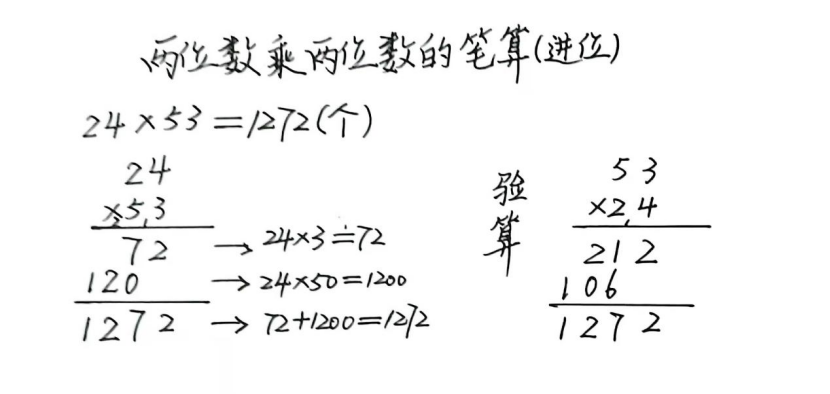 两位数乘两位数的笔算(进位)
24×53=1272(个)
24
×53
72 → 24×3=72
120 → 24×50=1200
1272 → 72+1200=1272
验算
53
×24
212
106
1272